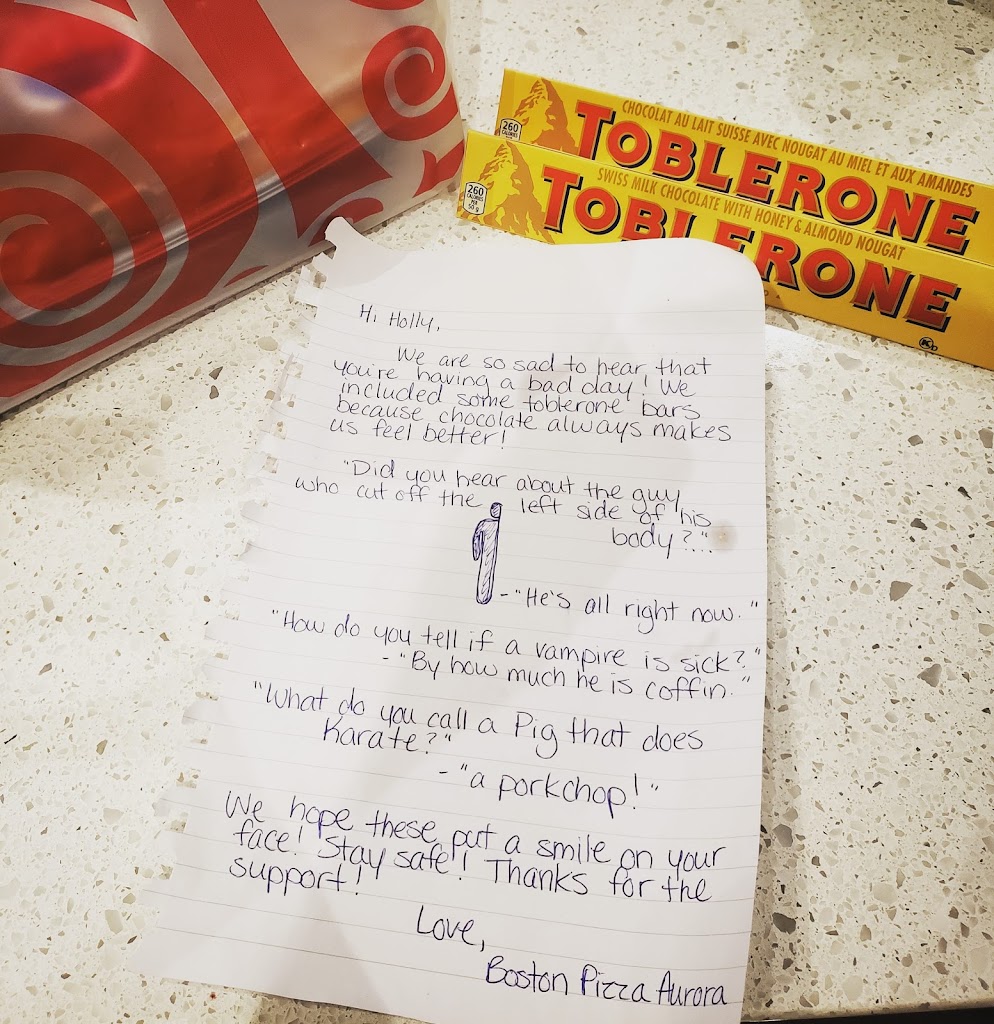 CHOCOLAT AU LAIT SUISSE AVEC NOUGAT AU MIEL ET AUX AMANDES
TOBLERONE
260
CALORIES
SWISS MILK CHOCOLATE WITH HONEY & ALMOND NOUGAT
TOBLERONE
260
CALORIES
PER
50 g
Hi Holly,
We are so sad to hear that
you're having a bad day! We
included some toblerone bars
because chocolate always makes
us feel better!
"Did you hear about the guy
who cut off the left side of his
body?"
- "He's all right now."
"How do you tell if a vampire is sick?"
- "By how much he is coffin."
"What do you call a Pig that does
Karate?"
- "a porkchop!"
We hope these put a smile on your
face! Stay safe! Thanks for the
support!
Love,
Boston Pizza Aurora